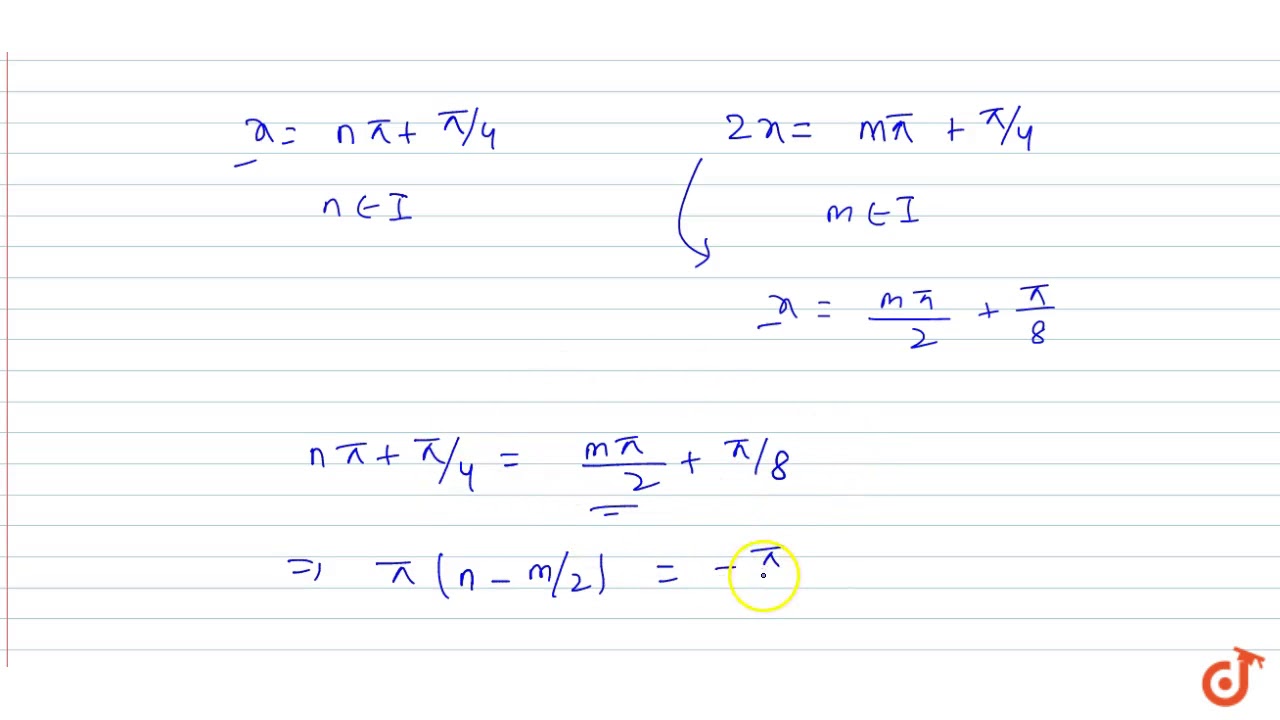 x = nπ + π/4
2x = mπ + π/4
n ∈ I
m ∈ I
x = mπ/2 + π/8
nπ + π/4 = mπ/2 + π/8
⇒ π(n - m/2) = - π